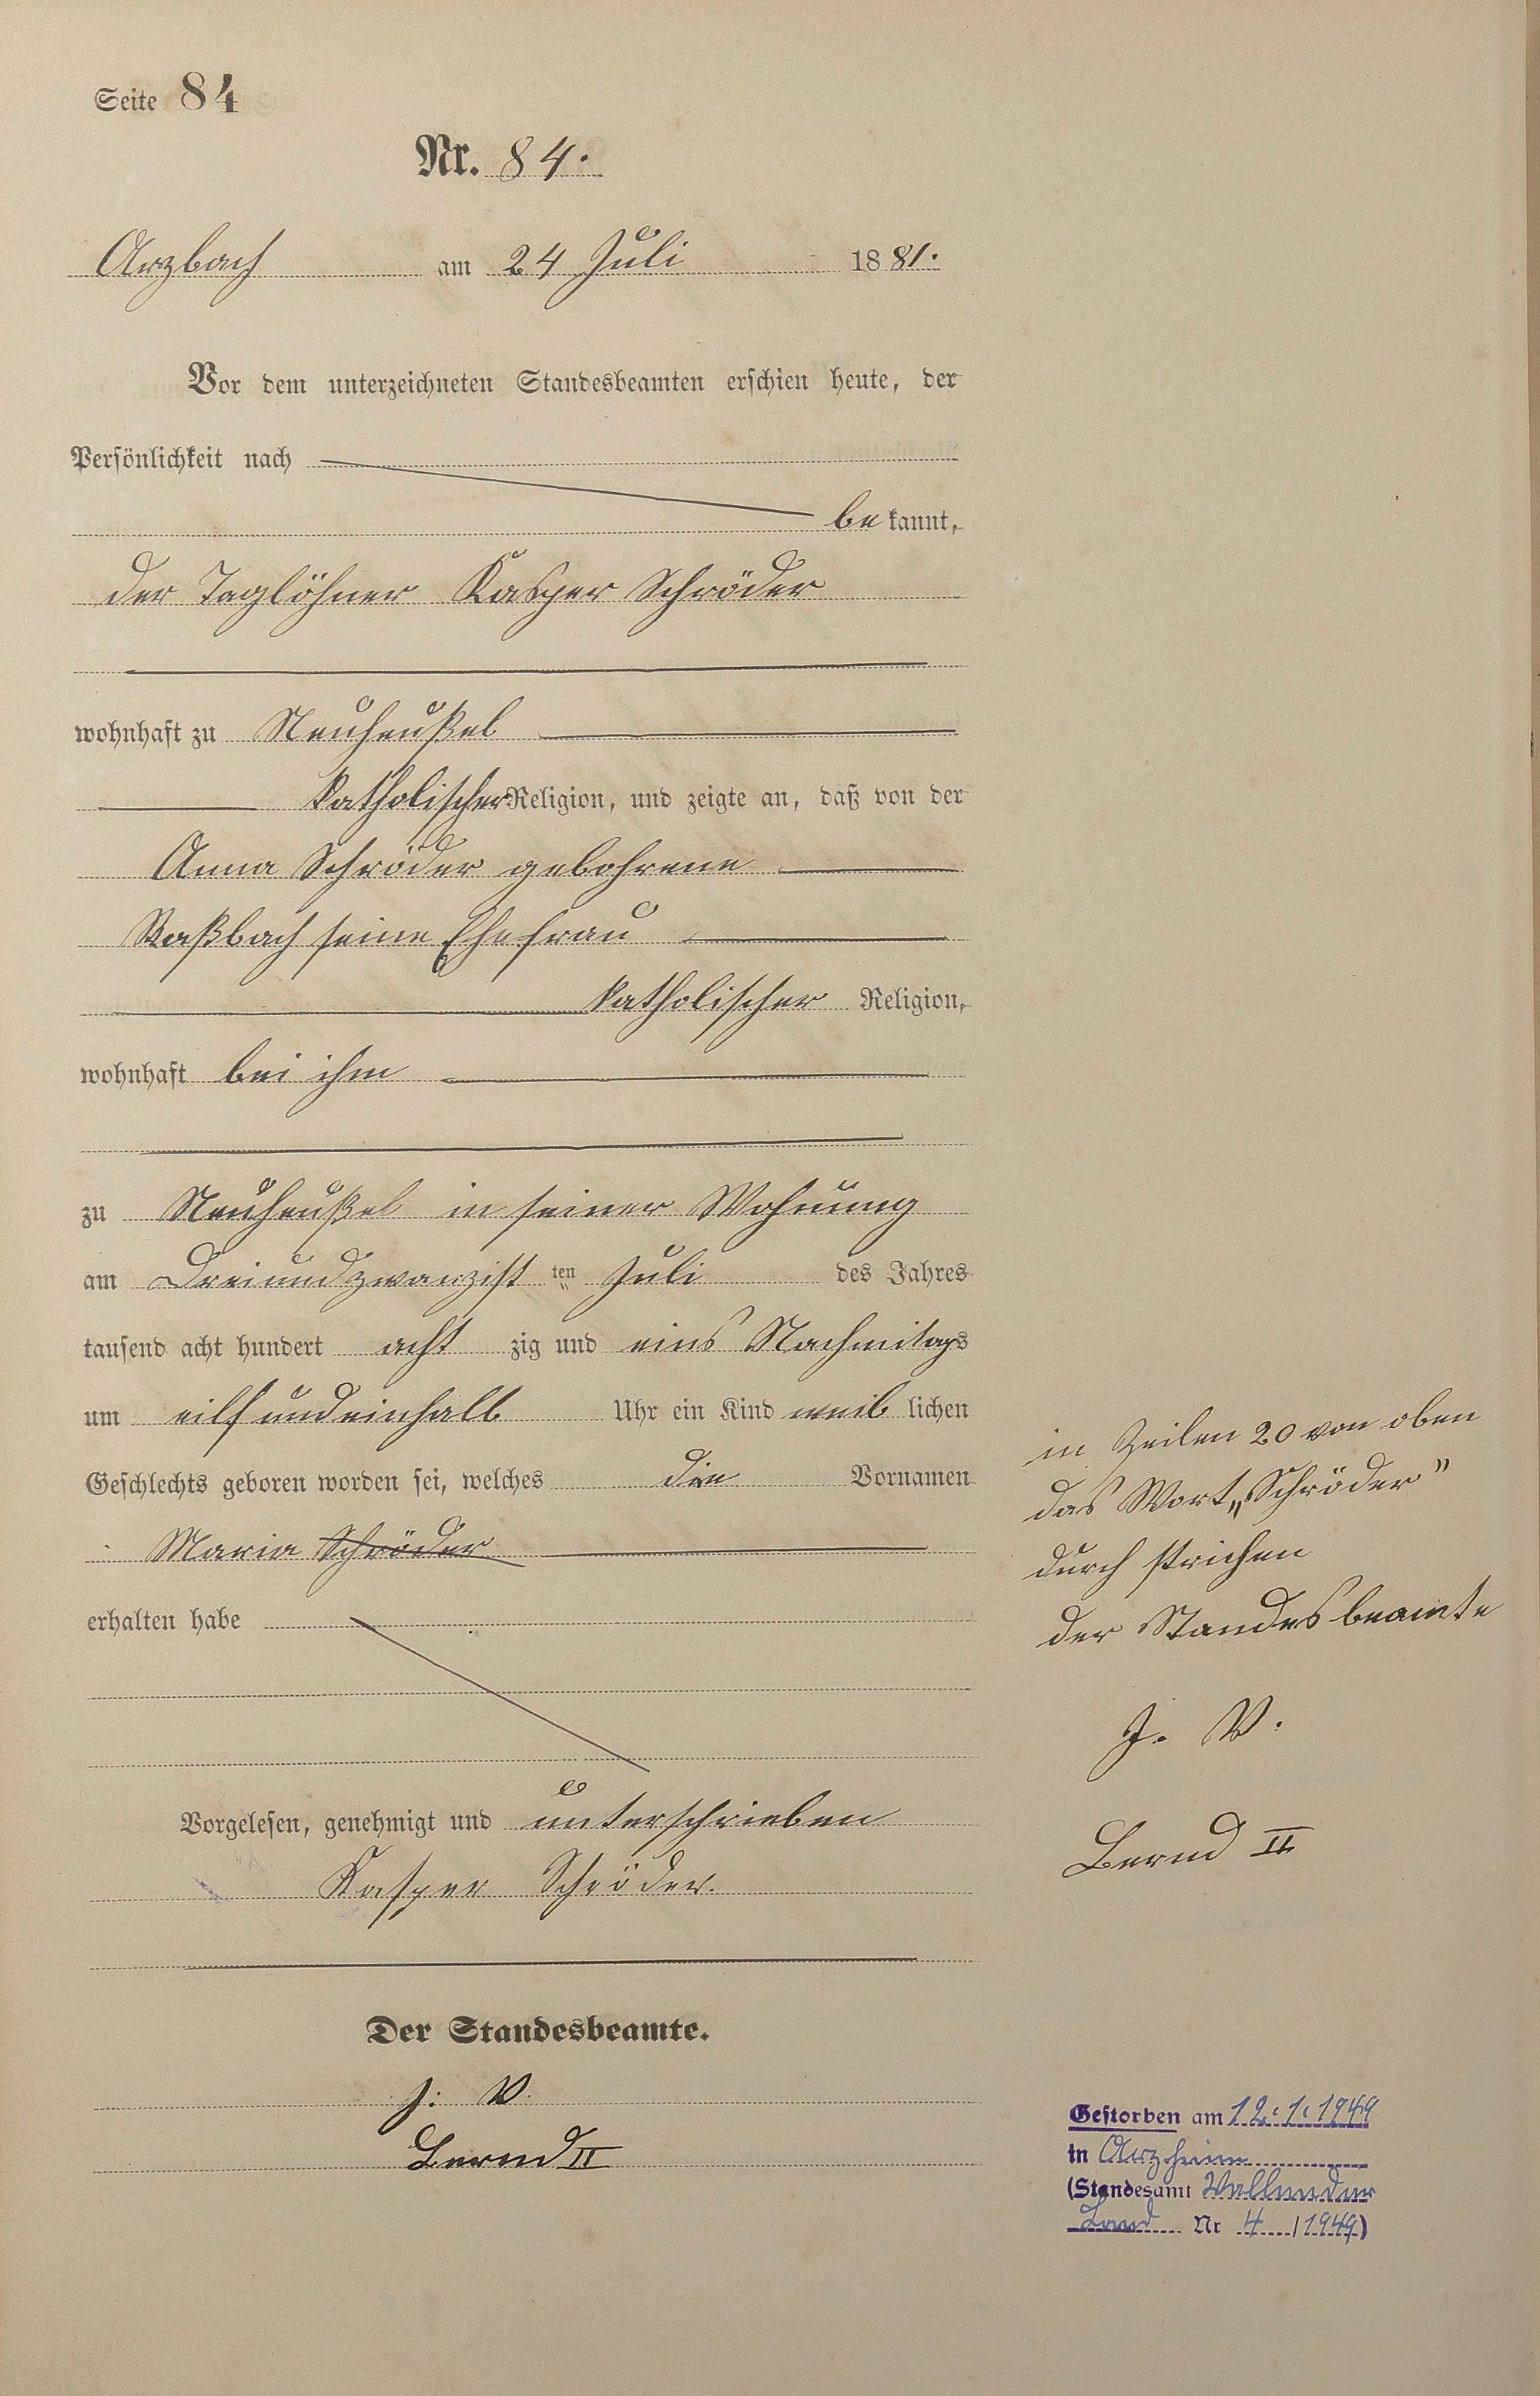 Seite 84
Nr. 84.
Arzbach am 24 Juli 1881.
Vor dem unterzeichneten Standesbeamten erschien heute, der
Persönlichkeit nach
bekannt,
der Taglöhner Kasper Schröder
wohnhaft zu Neuheußel
katholischer Religion, und zeigte an, daß von der
Anna Schröder gebohrene
seine Ehefrau
katholischer Religion,
wohnhaft bei ihm
zu Neuheußel in seiner Wohnung
am Dreiundzwanzigsten Juli des Jahres
tausend acht hundert achtzig und eins Nachmitags
um eilf und einhalb Uhr ein Kind weiblichen
Geschlechts geboren worden sei, welches die Vornamen
Maria Schröder
erhalten habe
Vorgelesen, genehmigt und unterschrieben
Kasper Schröder.
Der Standesbeamte.
J. V.
Bernd II
in Zeilen 20 von oben
das Wort „Schröder"
durch strichen
der Standesbeamte
J. V.
Bernd II
Gestorben am 12.1.1949
in Arzheim
(Standesamt Vallendar
Land Nr 4 / 1949)